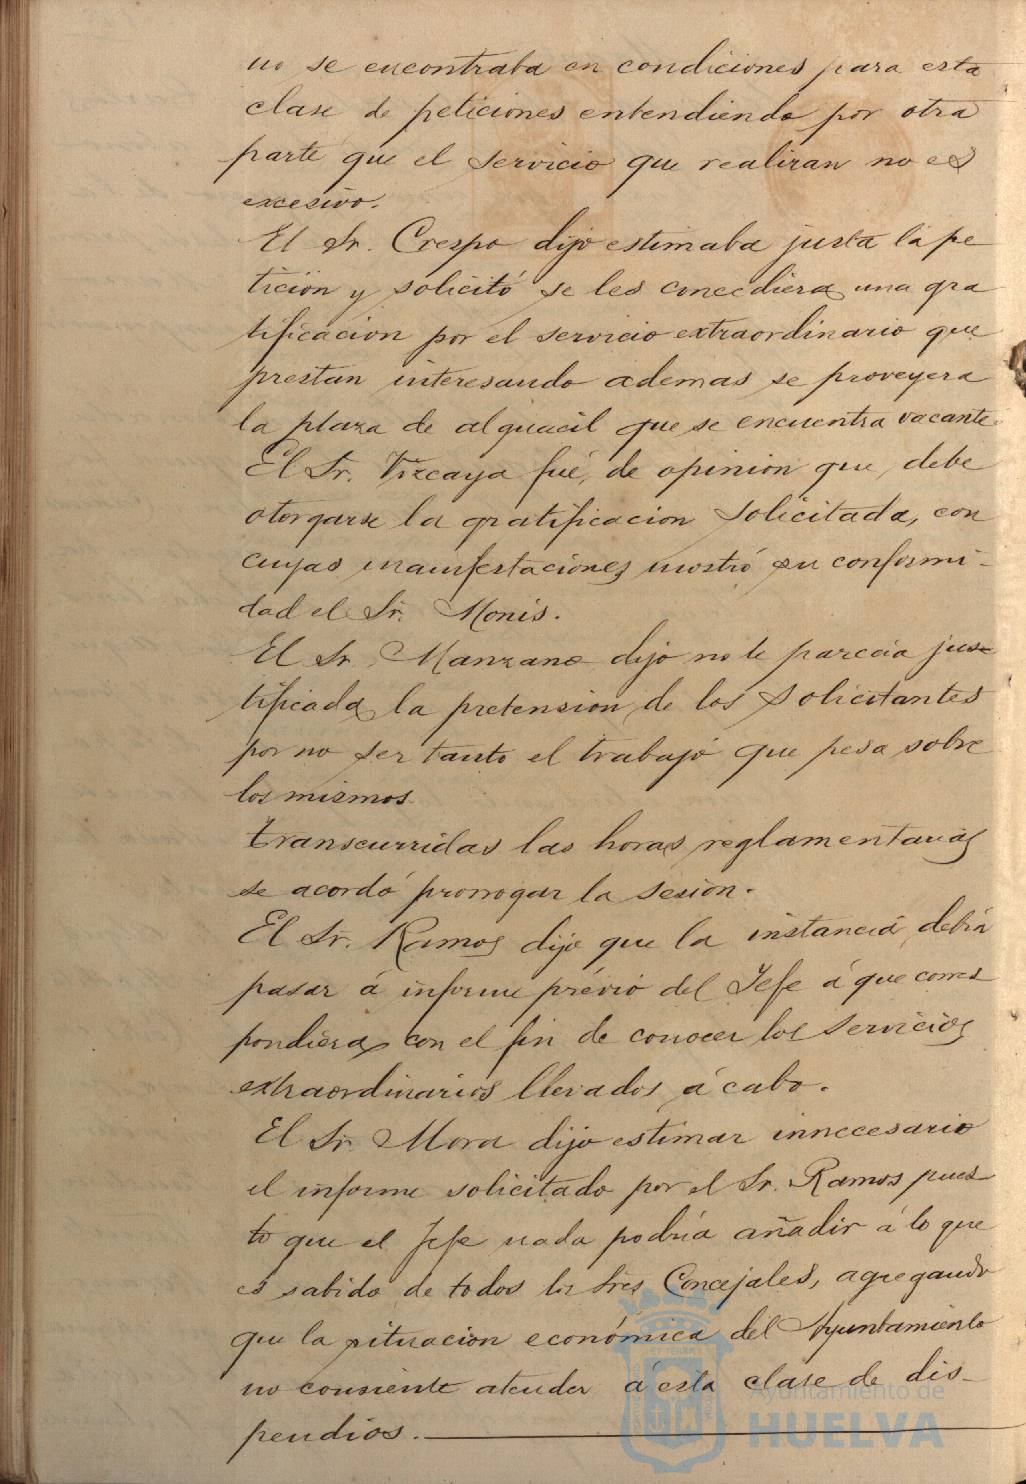 no se encontraba en condiciones para esta
clase de peticiones entendiendo por otra
parte que el servicio que realizan no es
excesivo.
El Sr. Crespo dijo estimaba justa la pe
tición y solicitó se les concediera una gra
tificacion por el servicio extraordinario que
prestan interesando ademas se proveyera
la plaza de alguacil que se encuentra vacante.
El Sr. Vizcaya fué, de opinion que debe
otorgarse la gratificacion solicitada, con
cuyas manifestaciones mostró su conformi-
dad el Sr. Monis.
El Sr. Manzano dijo no le parecia jus-
tificada la pretension de los solicitantes
por no ser tanto el trabajo que pesa sobre
los mismos.
Transcurridas las horas reglamentarias
se acordó prorrogar la sesion.
El Sr. Ramos dijo que la instancia debia
pasar á informe prévio del Jefe á que corres
pondiera con el fin de conocer los servicios
extraordinarios llevados á cabo.
El Sr. Mora dijo estimar innecesario
el informe solicitado por el Sr. Ramos pues
to que el Jefe nada podria añadir á lo que
es sabido de todos los Sres Concejales, agregando
que la situacion económica del Ayuntamiento
no consiente atender á esta clase de dis-
pendios.
Ayuntamiento de
HUELVA